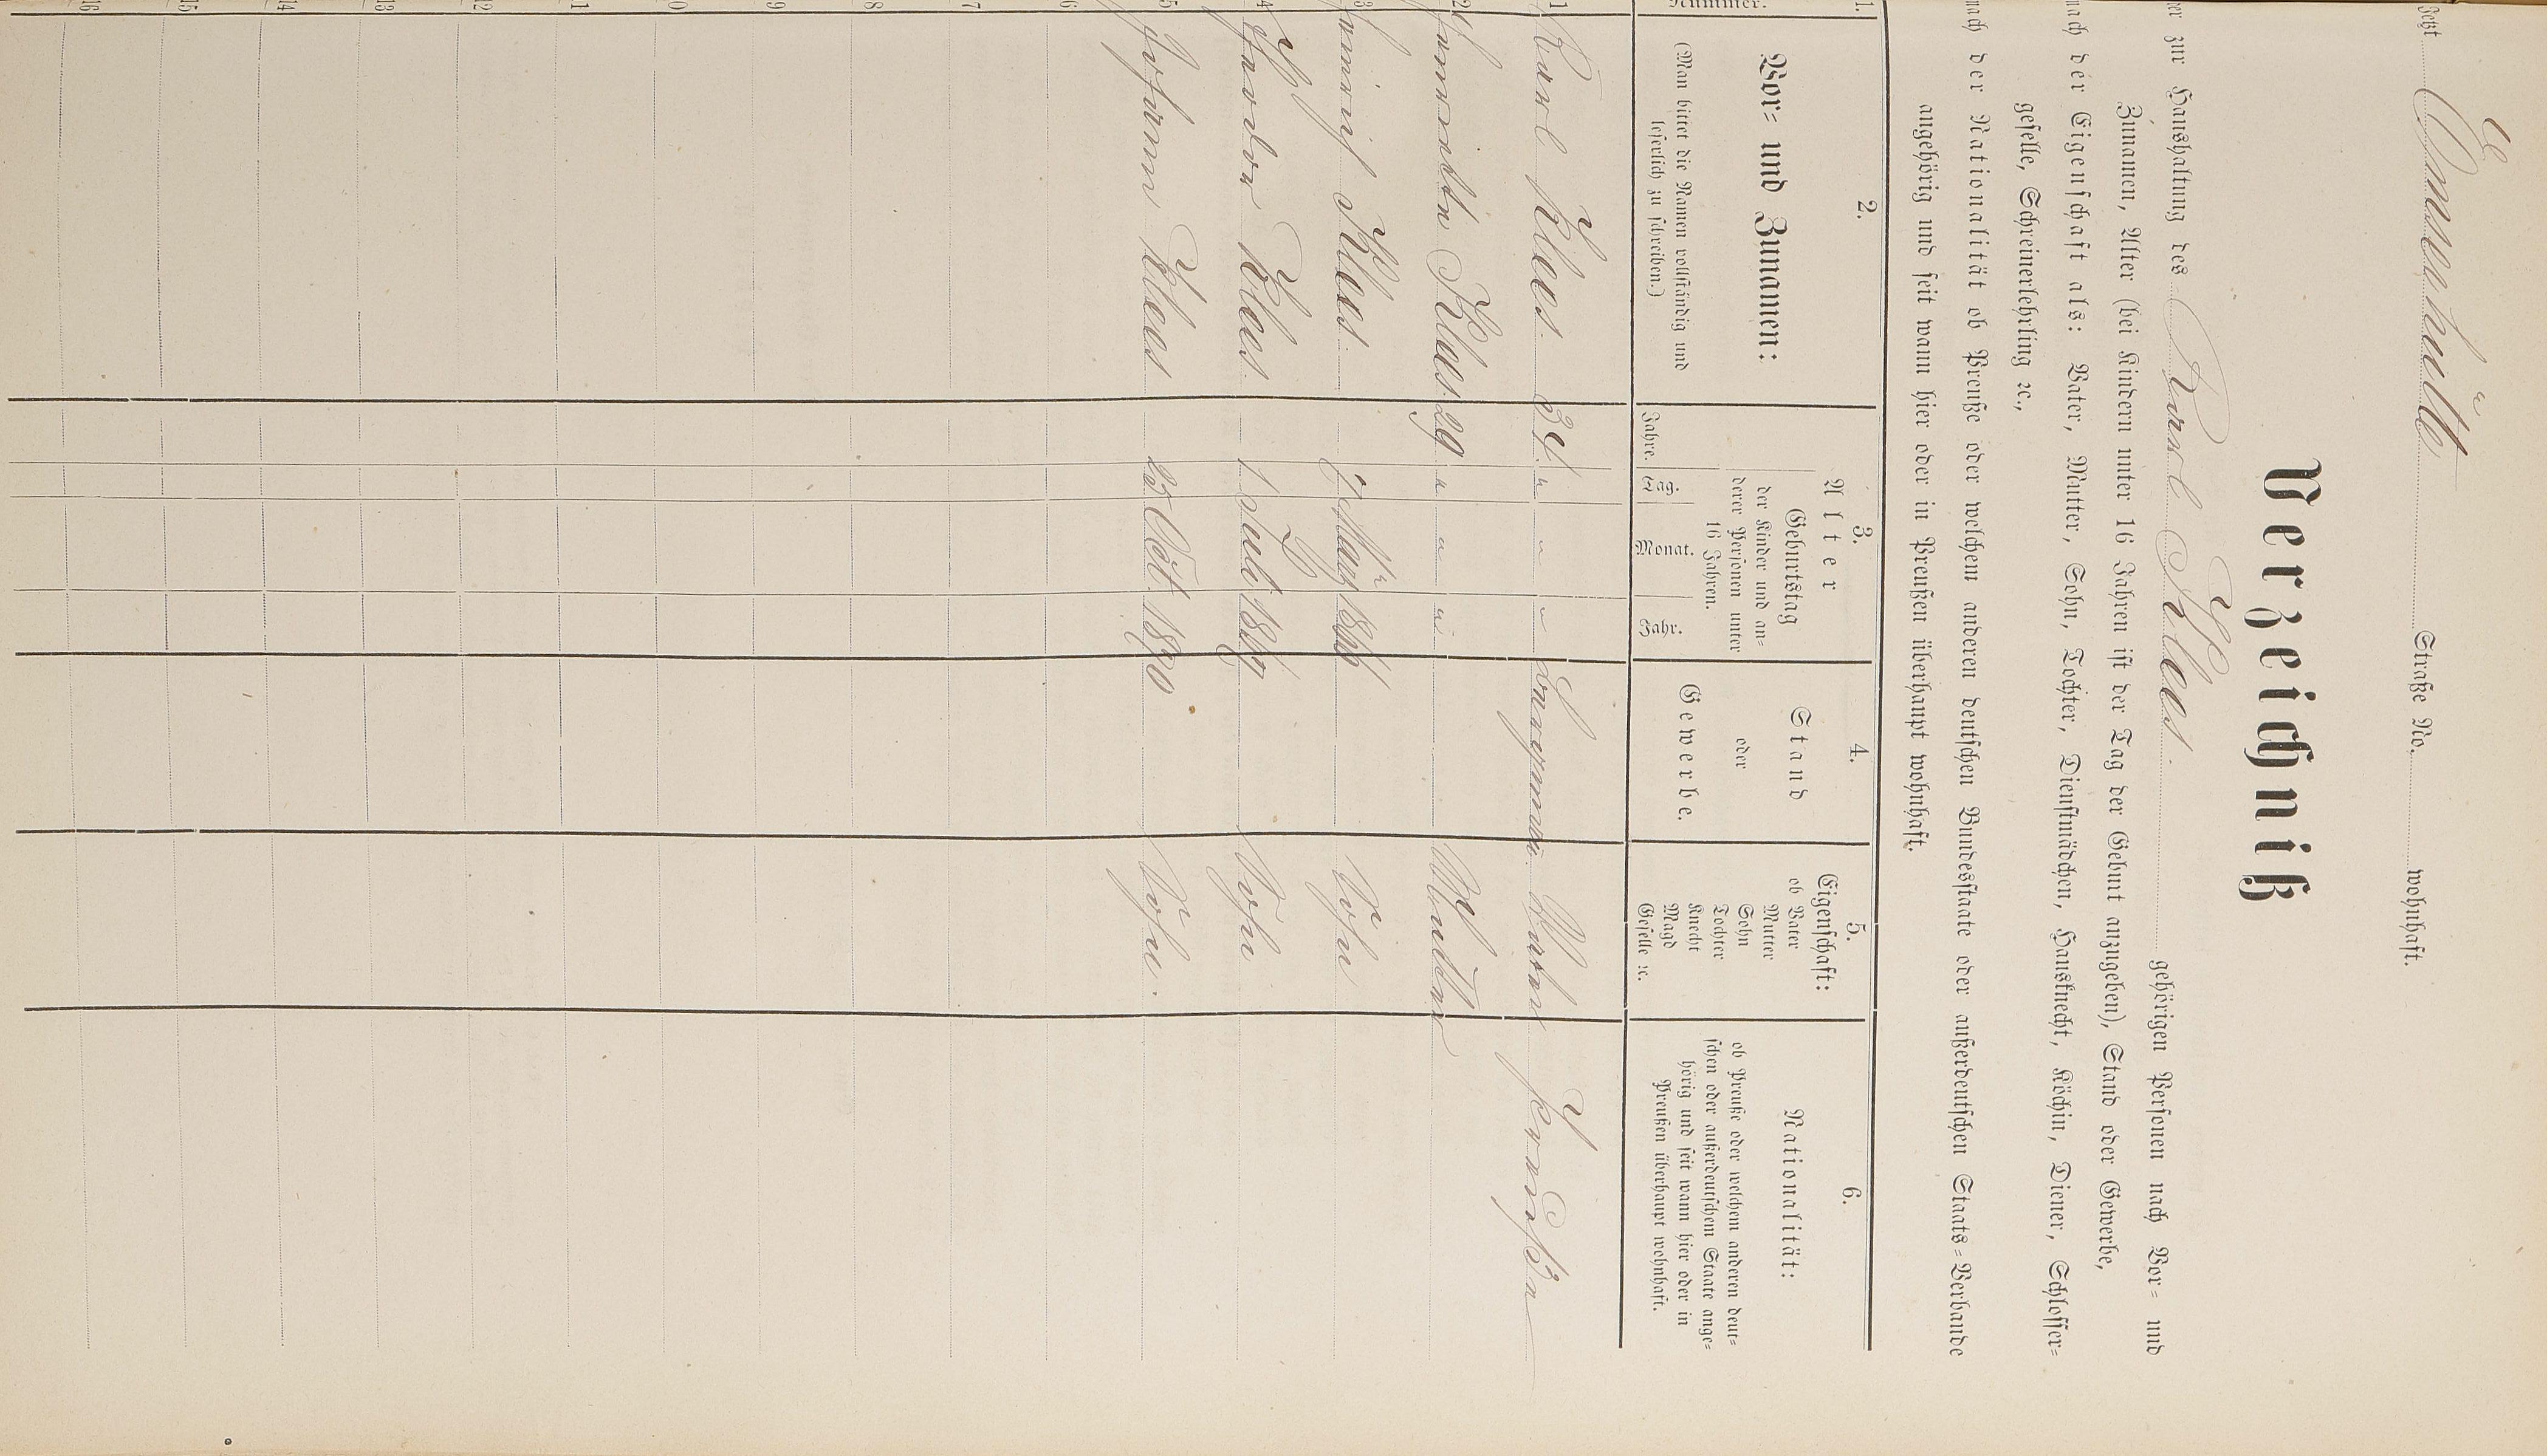 Jetzt Emmerhütte Straße No. wohnhaft.
Verzeichniß
der zur Haushaltung des Karl Klees. gehörigen Personen nach Vor- und
Zunamen, Alter (bei Kindern unter 16 Jahren ist der Tag der Geburt anzugeben), Stand oder Gewerbe,
nach der Eigenschaft als: Vater, Mutter, Sohn, Tochter, Dienstmädchen, Hausknecht, Köchin, Diener, Schlosser-
geselle, Schreinerlehrling ꝛc.,
nach der Nationalität ob Preuße oder welchem anderen deutschen Bundesstaate oder außerdeutschen Staats-Verbande
angehörig und seit wann hier oder in Preußen überhaupt wohnhaft.
1. 2. 3. 4. 5. 6.
Nummer.
Vor- und Zunamen:
(Man bittet die Namen vollständig und
leserlich zu schreiben.)
Alter
Jahre.
Geburtstag
der Kinder und an-
derer Personen unter
16 Jahren.
Tag. Monat. Jahr.
Stand
oder
Gewerbe.
Eigenschaft:
ob Vater
Mutter
Sohn
Tochter
Knecht
Magd
Geselle ꝛc.
Nationalität:
ob Preuße oder welchem anderen deut-
schen oder außerdeutschem Staate ange-
hörig und seit wann hier oder in
Preußen überhaupt wohnhaft.
1 Karl Klees. 34 " " " Bergmann Vater Preußen
2 Henriette Klees. 29 " " " Mutter
3 Heinrich Klees. 7 März 1866 Sohn
4 Klees. 1 Juli 1867 Sohn
5 Johann Klees 25 Oct. 1870 Sohn.
6
7
8
9
10
11
12
13
14
15
16